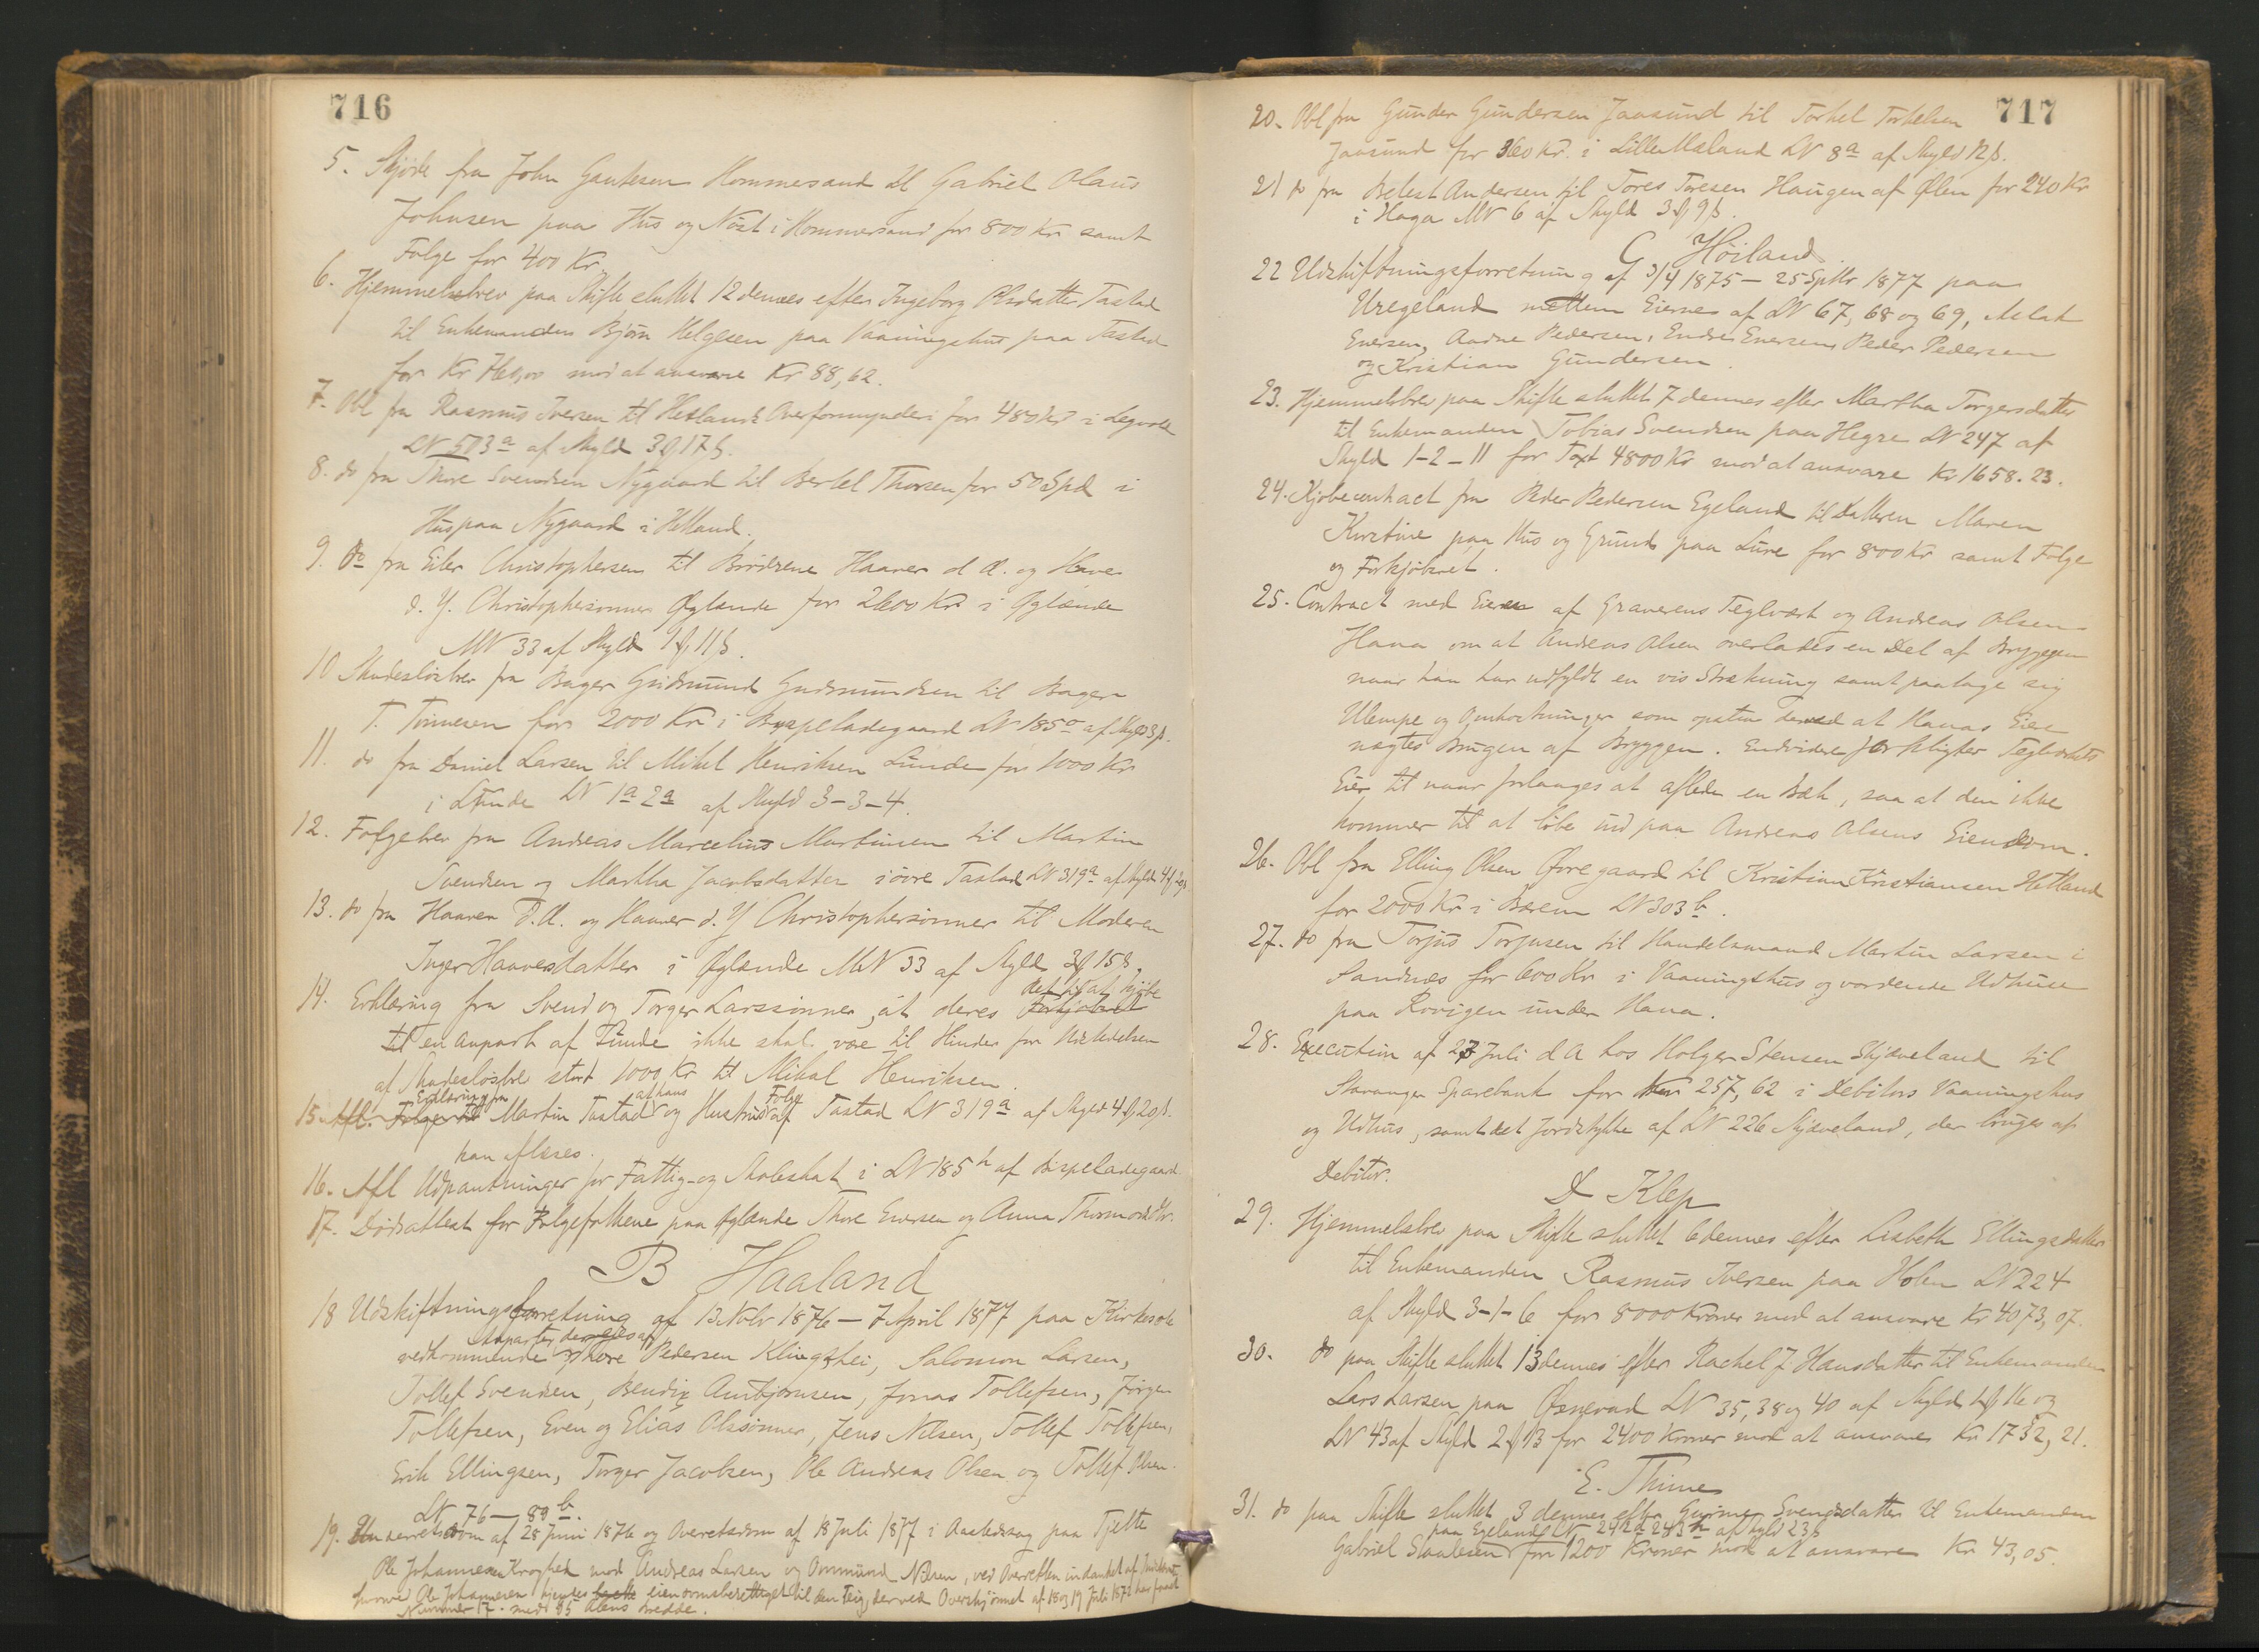 716
5. Skjøde fra John Gautesen Hommersand til Gabriel Olaus
Johnsen paa Hus og Nøst i Hommersand for 800 Kr samt
Følge for 400 Kr.
6. Hjemmelsbrev paa Skifte sluttet 12 dennes efter Ingeborg Olsdatter Tastad
til Enkemanden Bjørn Helgesen paa Vaaningshus paa Tastad
for Kr mod at ansvare Kr 88,62.
7. Obl fra Rasmus Iversen til Hetlands Overformynderi for 480 Kr i
LN 503a af Skyld 3 17 ß.
8. do fra Thore Svendsen Nygaard til Bertel Thorsen for 50 Spd i
Hus paa Nygaard i Hetland.
9. do fra Eiler Christophersen til Brødrene Haaver d. Æ. og Haaver
d. Y. Christophersønner Øglænde for 2600 Kr i Øglænde
MN 33 af Skyld 11 ß.
10 Skadesløsbrev fra Bager Gudmund Gudmundsen til Bager
T. Tønnesen for 2000 Kr i Bispeladegaard LN 185o af Skyld 3 ß.
11. do fra Daniel Larsen til Mikal Henriksen Lunde for 1000 Kr
i Lunde LN 1a 2a af Skyld 3-3-4.
12. Følgebrev fra Andreas Marcelius Martinsen til Martin
Svendsen og Martha Jacobsdatter i øvre Tastad LN 319a af Skyld 4
13. do fra Haaver d. Æ. og Haaver d. Y Christophersønner til Moderen
Inger Haaversdatter i Øglænde MN 33 af Skyld 3 15 ß.
14. Erklæring fra Svend og Torger Larssønner, at deres Forkjøbsret
det til at kjøbe
til en anpart af Lunde ikke skal være til Hinder for Udstedelsen
af Skadesløsbrev stort 1000 Kr til Mikal Henriksen.
15 Afl. Følge til Erklæring fra Martin Tastad at hans og Hustrus Følge af Tastad LN 319a af Skyld 4 20 ß.
kan aflæses.
16. Afl Udpantninger for Fattig- og Skoleskat i LN 185h af Bispeladegaard
17. Dødsattest for Følgefolkene paa Øglænde Thore Enersen og Anna Thormodsdtr.
B Haaland
18 Udskiftningsforretning af 13 Novbr 1876 - 7 April 1877 paa Kirkesole
vedkommende Anparter, der eies af Thore Pedersen Klingshei, Salomon Larsen,
Tollef Svendsen, Bendix Ambjørnsen, Jonas Tollefsen, Jørgen
Tollefsen, Even og Elias Olssønner, Jens Nilsen, Tollef Tollefsen,
Erik Ellingsen, Torger Jacobsen, Ole Andreas Olsen og Tollef Olsen.
LN 76 - 89b.
19. Underretsdom af 28 Juni 1876 og Overretsdom af 18 Juli 1877 i Aastedssag paa Tjelte
Ole Johannesen Kroghed mod Andreas Larsen og Ommund Nilsen, ved Overretten indanket af
hvorved Ole Johannesen kjendes eiendomsberettiget til den Teig, der ved Overskjønnet af 18 og 19 Juli 1872 har faaet
Nummer 17. med 95 Alens Bredde.
717
20. Obl fra Gunder Gundersen Jaasund til Torkel Torkelsen
Jaasund for 360 Kr. i Lille Mæland LN 8a af Skyld 12 ß.
21 do fra Betest Andersen til Tores Toresen Haugen af Ølen for 240 Kr
i Haga MN 6 af Skyld 3 9 ß.
C Høiland
22 Udskiftningsforretning af 3/4 1875 - 25 Sptbr 1877 paa
Uregeland mellem Eierne af LN 67, 68 og 69, Aslak
Enersen, Aadne Pedersen, Endre Enersen, Peder Pedersen
og Kristian Gundersen.
23. Hjemmelsbrev paa Skifte sluttet 7 dennes efter Martha Torgersdatter
til Enkemanden Tobias Svendsen paa Hegre LN 247 af
Skyld 1-2-11 for Taxt 4800 Kr mod at ansvare Kr 1658.23.
24. Kjøbecontract fra Peder Pedersen Egeland til Datteren Maren
Kirstine paa Hus og Grund paa Lure for 800 Kr samt Følge
og Forkjøbsret.
25. Contract med Eieren af Graverens Teglværk og Andreas Olsen
Hana om at Andreas Olsen overlades en Del af Bryggen
naar han har udfyldt en vis Strækning samt paatage sig
Ulempe og Omkostninger som opstaa derved at Hanas Eier
nægtes Brugen af Bryggen. Endvidere forpligter Teglværkets
Eier til naar forlanges at aflede en Bæk, saa at den ikke
kommer til at løbe ind paa Andreas Olsens Eiendom.
26. Obl fra Elling Olsen Øvregaard til Kristian Kristiansen Hetland
for 2000 Kr i Bærem LN 303b.
27. do fra Torjus Torjusen til Handelsmand Martin Larsen i
Sandnæs for 600 Kr i Vaaningshus og vordende Udhuse
paa Rovigen under Hana.
28. Execution af 27 Juli d A hos Holger Stensen Skjæveland til
Stavanger Sparebank for Kr 257,62 i Debitors Vaaningshus
og Udhus, samt det Jordstykke af LN 226 Skjæveland, der bruges af
Debitor.
D Klep
29. Hjemmelsbrev paa Skifte sluttet 6 dennes efter Lisbeth Ellingsdatter
til Enkemanden Rasmus Iversen paa Holen LN 224
af Skyld 3-1-6 for 8000 Kroner mod at ansvare Kr 4073,07.
30. do paa Skifte sluttet 13 dennes efter Rachel J Hansdatter til Enkemanden
Lars Larsen paa Øsnevad LN 35, 38 og 40 af Skyld 16 og
LN 43 af Skyld 2 13 for 2400 Kroner mod at ansvare Kr 1732,21.
E. Thime
31. do paa Skifte sluttet 3 dennes efter Svendsdatter til Enkemanden
paa Egeland LN 242a 243 af Skyld 23 ß
Gabriel Staalesen for 1200 Kroner mod at ansvare Kr 43,05.